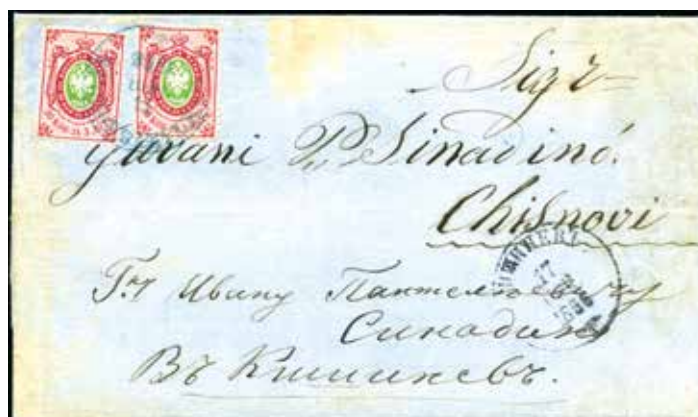 Sigr
Giovani P. Sinadino.
Chisnovi
КИШИНЕВЪ
17
Г-ну Ивану Пантелеевичу
Синадино
Въ Кишиневъ.